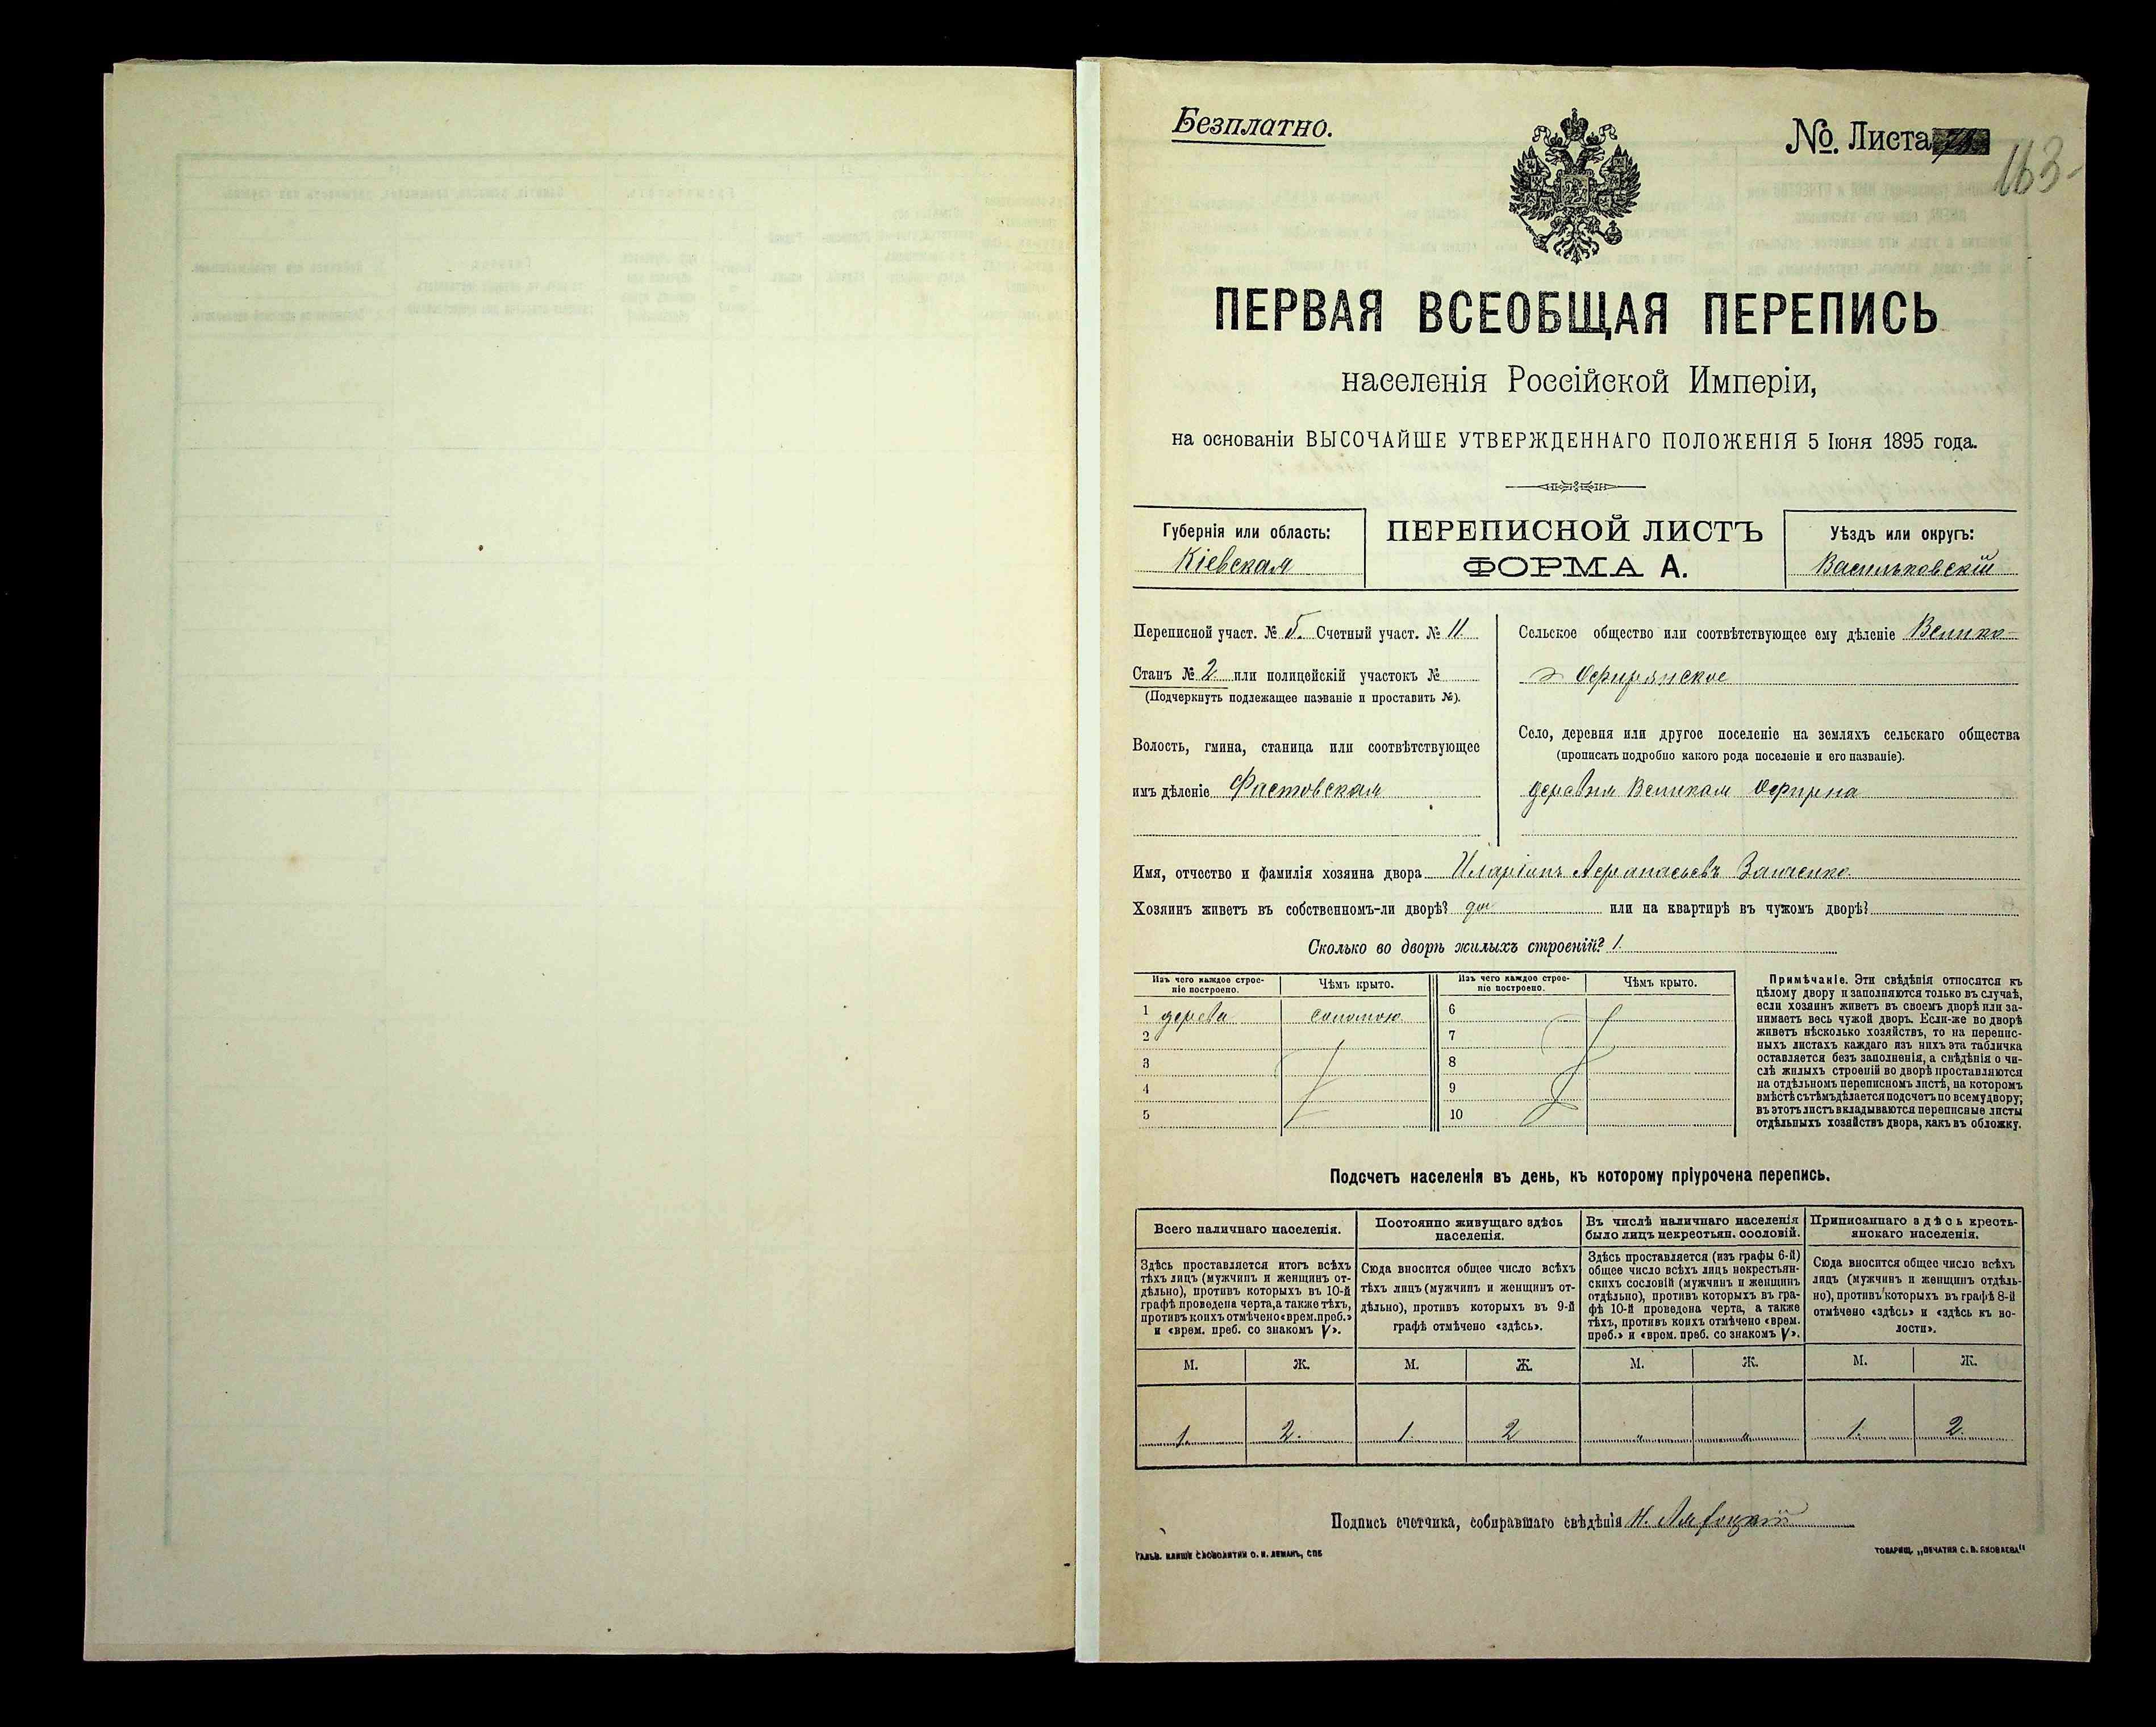 Безплатно.
№. Листа
163
ПЕРВАЯ ВСЕОБЩАЯ ПЕРЕПИСЬ
населенія Россійской Имперіи,
на основаніи ВЫСОЧАЙШЕ УТВЕРЖДЕННАГО ПОЛОЖЕНІЯ 5 Іюня 1895 года.
Губернія или область:
Кіевская
ПЕРЕПИСНОЙ ЛИСТЪ
ФОРМА А.
Уѣздъ или округъ:
Васильковскій
Переписной участ. № 5. Счетный участ. № 11.
Станъ № 2 или полицейскій участокъ №
(Подчеркнуть подлежащее названіе и проставить №).
Волость, гмина, станица или соотвѣтствующее
имъ дѣленіе Фастовская
Сельское общество или соотвѣтствующее ему дѣленіе Велико-
Офирянское
Село, деревня или другое поселеніе на земляхъ сельскаго общества
(прописать подробно какого рода поселеніе и его названіе).
деревня Великая Офирна
Имя, отчество и фамилія хозяина двора Иларіонъ Афанасьевъ
Хозяинъ живетъ въ собственномъ-ли дворѣ? да или на квартирѣ въ чужомъ дворѣ?
Сколько во дворѣ жилыхъ строеній? 1.
Изъ чего каждое строе-
ніе построено.
Чѣмъ крыто.
Изъ чего каждое строе-
ніе построено.
Чѣмъ крыто.
1 дерева соломою 6
2 7
3 8
4 9
5 10
Примѣчаніе. Эти свѣдѣнія относятся къ
цѣлому двору и заполняются только въ случаѣ,
если хозяинъ живетъ въ своемъ дворѣ или за-
нимаетъ весь чужой дворъ. Если-же во дворѣ
живетъ нѣсколько хозяйствъ, то на перепис-
ныхъ листахъ каждаго изъ нихъ эта табличка
оставляется безъ заполненія, а свѣдѣнія о чи-
слѣ жилыхъ строеній во дворѣ проставляются
на отдѣльномъ переписномъ листѣ, на которомъ
вмѣстѣ съ тѣмъ дѣлается подсчетъ по всему двору;
въ этотъ листъ вкладываются переписные листы
отдѣльныхъ хозяйствъ двора, какъ въ обложку.
Подсчетъ населенія въ день, къ которому пріурочена перепись.
Всего наличнаго населенія.
Здѣсь проставляется итогъ всѣхъ
тѣхъ лицъ (мужчинъ и женщинъ от-
дѣльно), противъ которыхъ въ 10-й
графѣ проведена черта, а также тѣхъ,
противъ коихъ отмѣчено «врем. преб.»
и «врем. преб. со знакомъ V».
Постоянно живущаго здѣсь
населенія.
Сюда вносится общее число всѣхъ
тѣхъ лицъ (мужчинъ и женщинъ от-
дѣльно), противъ которыхъ въ 9-й
графѣ отмѣчено «здѣсь».
Въ числѣ наличнаго населенія
было лицъ некрестьян. сословій.
Здѣсь проставляется (изъ графы 6-й)
общее число всѣхъ лицъ некрестьян-
скихъ сословій (мужчинъ и женщинъ
отдѣльно), противъ которыхъ въ гра-
фѣ 10-й проведена черта, а также
тѣхъ, противъ коихъ отмѣчено «врем.
преб.» и «врем. преб. со знакомъ V».
Приписаннаго здѣсь кресть-
янскаго населенія.
Сюда вносится общее число всѣхъ
лицъ (мужчинъ и женщинъ отдѣль-
но), противъ которыхъ въ графѣ 8-й
отмѣчено «здѣсь» и «здѣсь къ во-
лости».
М. Ж. М. Ж. М. Ж. М. Ж.
1. 2. 1. 2 " " 1. 2.
Подпись счетчика, собиравшаго свѣдѣнія Н.
ГАЛЬВ. КЛИШЕ СЛОВОЛИТНИ О. И. ЛЕМАНЪ, СПБ
ТОВАРИЩ. „ПЕЧАТНЯ С. П. ЯКОВЛЕВА“